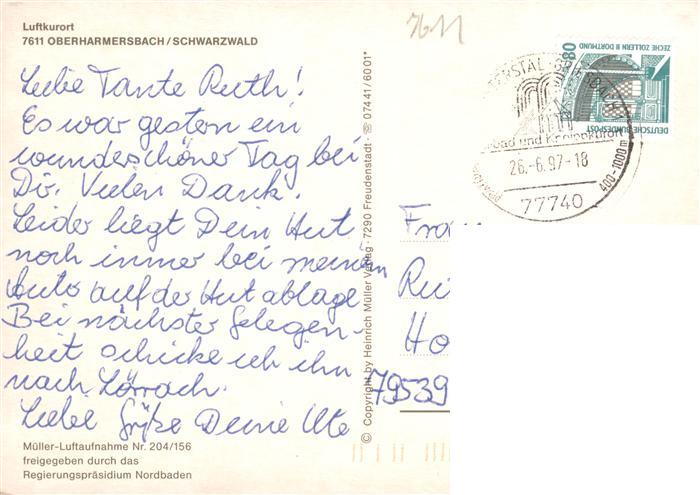 Luftkurort
7611 OBERHARMERSBACH/SCHWARZWALD
7611
Liebe Tante Ruth!
Es war gestern ein
wunderschöner Tag bei
Dir. Vielen Dank.
Leider liegt Dein Hut
noch immer bei meinem
Auto auf der Hutablage
Bei nächster Gelegen-
heit schicke ich ihn
nach Lörrach.
Liebe Grüße Deine Ute
Müller-Luftaufnahme Nr. 204/156
freigegeben durch das
Regierungspräsidium Nordbaden
© Copyright by Heinrich Müller Verlag · 7290 Freudenstadt · ☏ 07441/6001*
80
ZECHE ZOLLERN II DORTMUND
DEUTSCHE BUNDESPOST
bad und Kneippkurort
26.-6.97-18
400-1000m
77740
Fra
Ru
Ho
79539